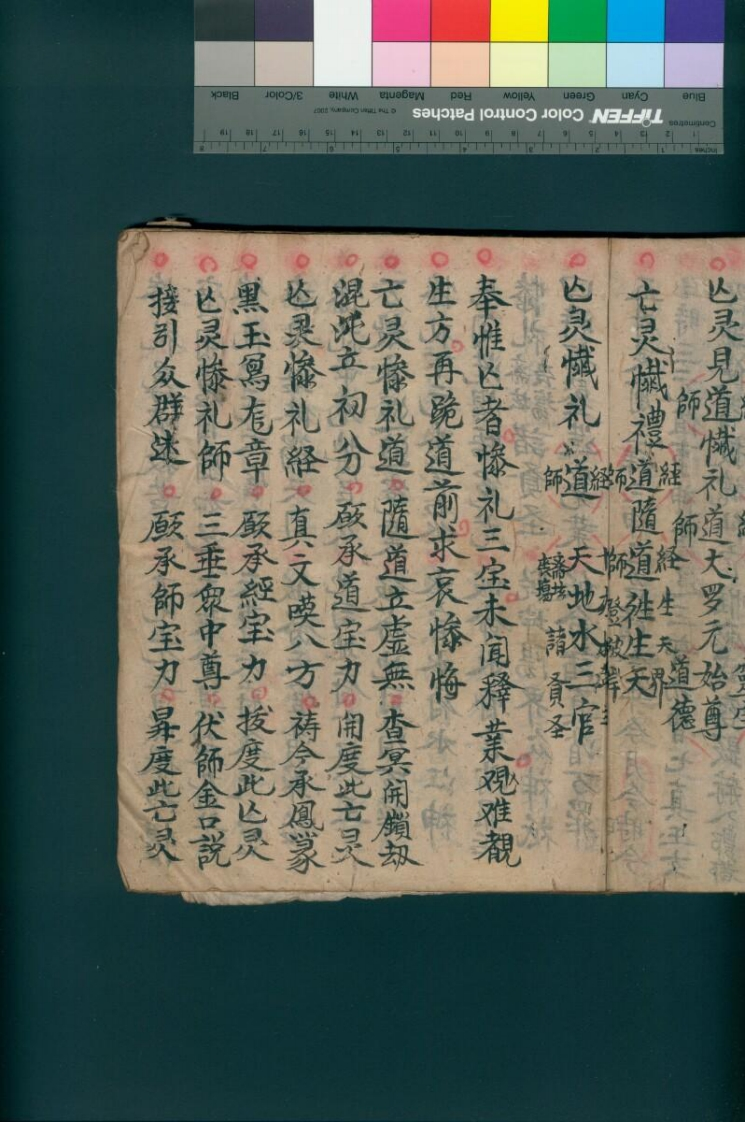 亾灵見道懴礼道大罗元始尊
師 師 道德
経 経 生 天 界
亡灵懴禮道隨道徃生天
師 師
亾灵懴礼道天地水三官
経
師 諸真圣
奉惟亾者惨礼三宝未闻釋業观难覩
生方再跪道前求哀惨悔
亡灵惨礼道 隨道立虛無 杳冥開鎖劫
混沌立初分 願承道宝力 開度此亡灵
亾灵惨礼経 真文暎八方 祷今承鳳篆
黑玉寫龙章 願承經宝力 拔度此亾灵
亾灵惨礼師 三垂眾中尊 伏師金口説
接引众群迷 願承師宝力 昇度此亡灵
TIFFEN Color Control Patches
© The Tiffen Company, 2007
Blue Cyan Green Yellow Red Magenta White 3/Color Black
Centimetres
Inches